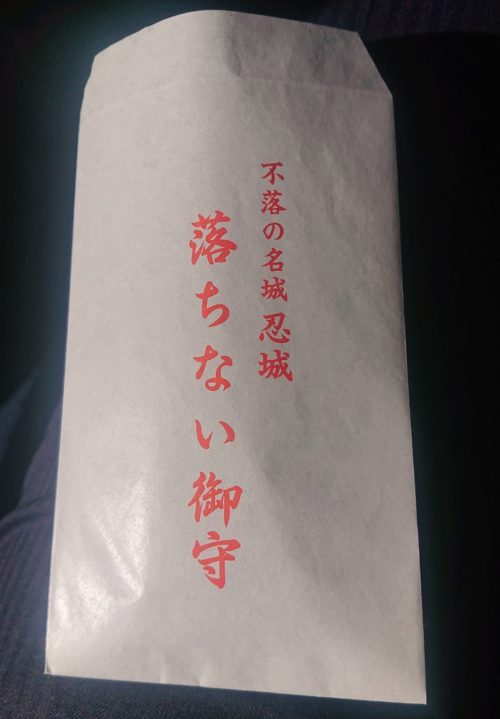 不落の名城忍城
落ちない御守